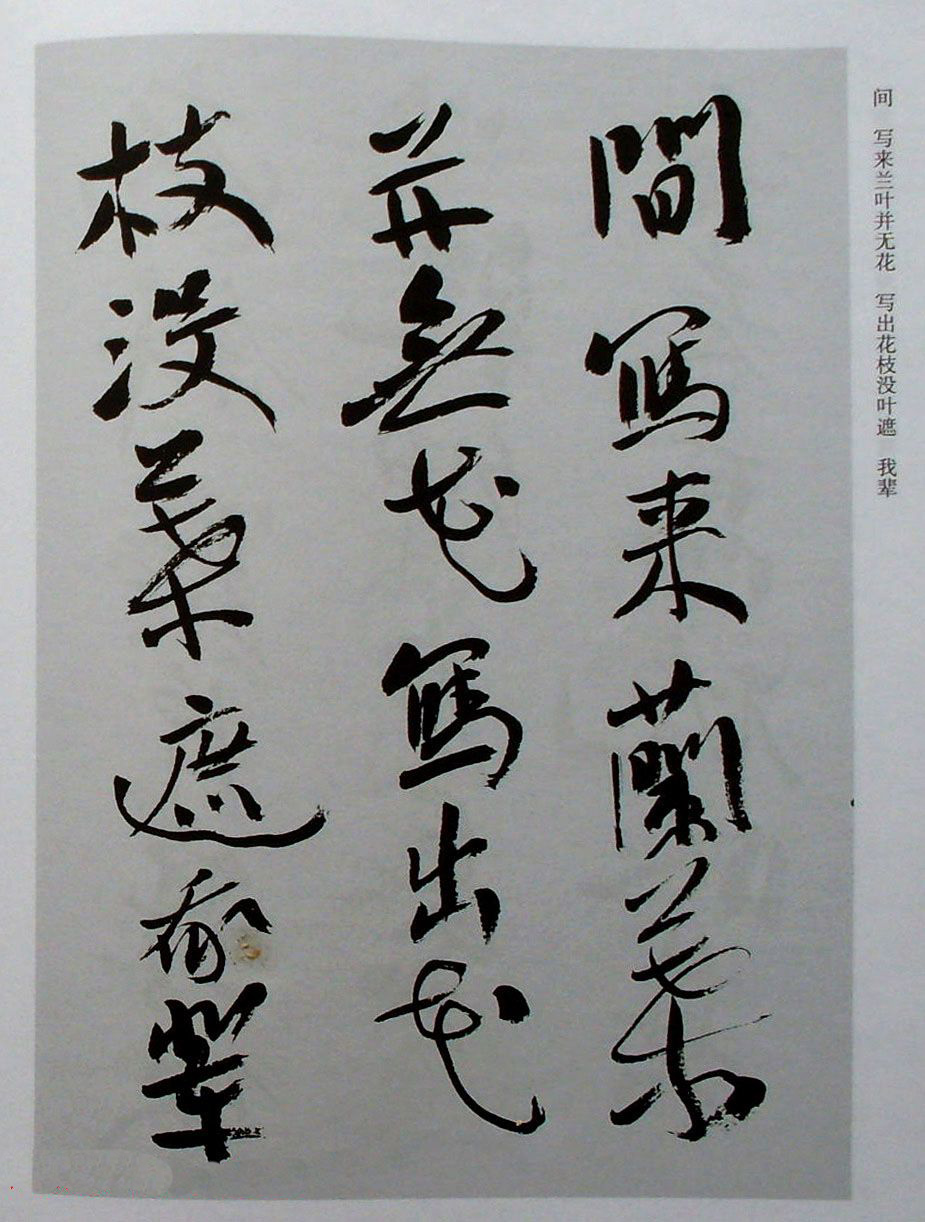 间 写来兰叶并无花 写出花枝没叶遮 我辈
間寫来蘭葉
并無花寫出花
枝没葉遮我輩